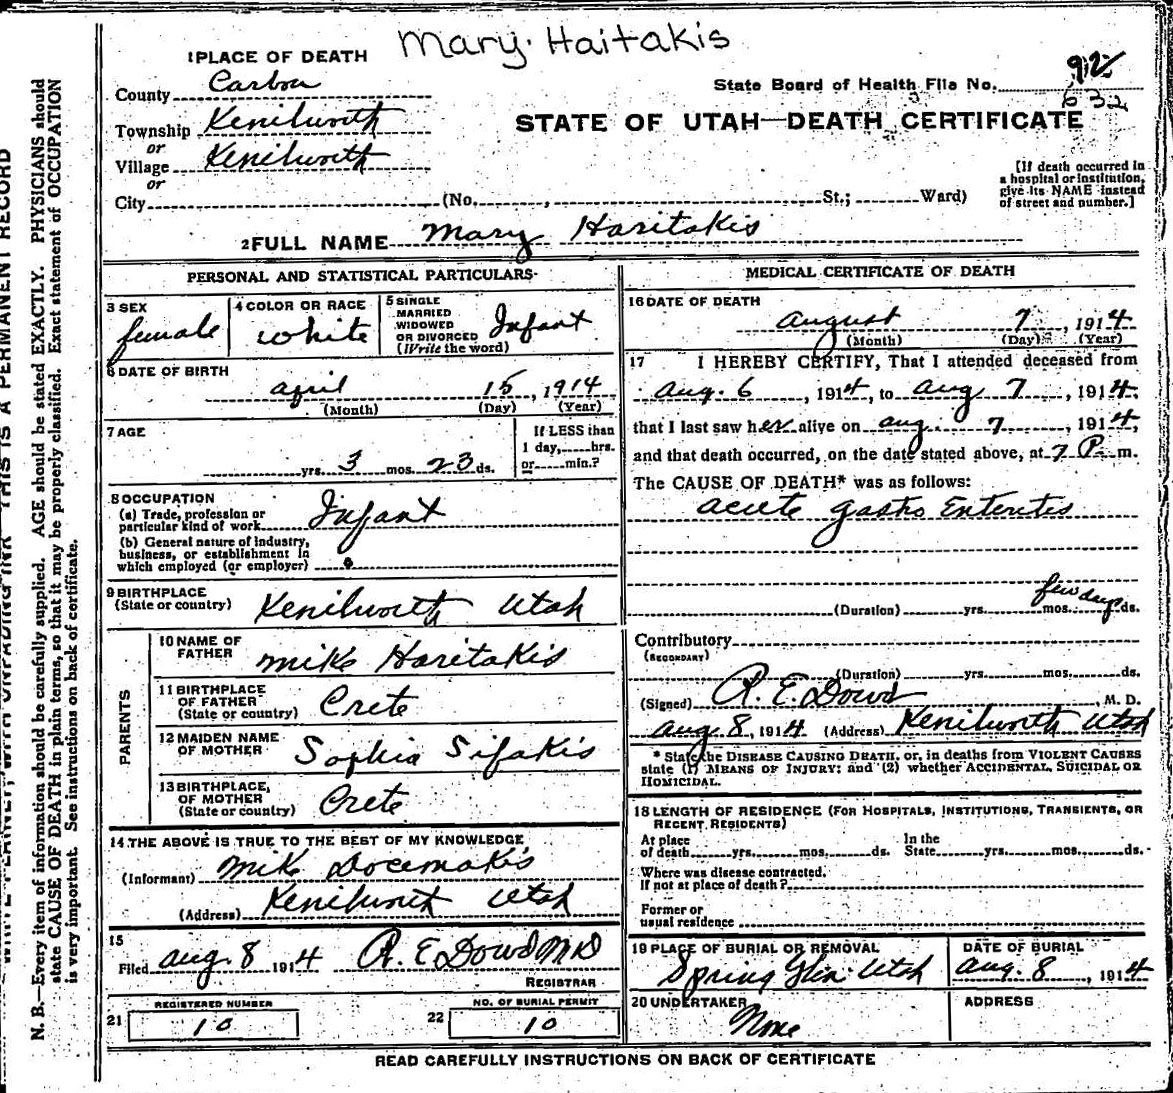 Mary. Haitakis
1 PLACE OF DEATH
County Carbon
State Board of Health File No. 92
632
Township Kenilworth
or
Village Kenilworth
or
STATE OF UTAH—DEATH CERTIFICATE
[If death occurred in
a hospital or institution,
give its NAME instead
of street and number.]
City (No. , St.; Ward)
2 FULL NAME Mary Haritakis
PERSONAL AND STATISTICAL PARTICULARS
3 SEX
female
4 COLOR OR RACE
white
5 SINGLE
MARRIED
WIDOWED
OR DIVORCED
(Write the word)
Infant
6 DATE OF BIRTH
april 15, 1914
(Month) (Day) (Year)
7 AGE
yrs. 3 mos. 23 ds.
If LESS than
1 day, hrs.
or min.?
8 OCCUPATION
(a) Trade, profession or
particular kind of work Infant
(b) General nature of industry,
business, or establishment in
which employed (or employer)
9 BIRTHPLACE
(State or country) Kenilworth Utah
PARENTS
10 NAME OF
FATHER
mike Haritakis
11 BIRTHPLACE
OF FATHER
(State or country) Crete
12 MAIDEN NAME
OF MOTHER Sophia Sifakis
13 BIRTHPLACE,
OF MOTHER
(State or country) Crete
14 THE ABOVE IS TRUE TO THE BEST OF MY KNOWLEDGE
(Informant) Mik Docemakis
(Address) Kenilworth Utah
15
Filed aug. 8 1914 R. E. Dowd MD
REGISTRAR
REGISTERED NUMBER
21 10
NO. OF BURIAL PERMIT
22 10
MEDICAL CERTIFICATE OF DEATH
16 DATE OF DEATH
august 7, 1914
(Month) (Day) (Year)
17 I HEREBY CERTIFY, That I attended deceased from
aug. 6, 1914, to aug 7, 1914,
that I last saw her alive on aug. 7, 1914,
and that death occurred, on the date stated above, at 7 P. m.
The CAUSE OF DEATH* was as follows:
acute gastro Enteritis
(Duration) yrs. mos. few days ds.
Contributory
(SECONDARY)
(Duration) yrs. mos. ds.
(Signed) R. E. Dowd M. D.
aug. 8, 1914 (Address) Kenilworth Utah
* State the DISEASE CAUSING DEATH, or, in deaths from VIOLENT CAUSES
state (1) MEANS OF INJURY; and (2) whether ACCIDENTAL, SUICIDAL OR
HOMICIDAL.
18 LENGTH OF RESIDENCE (FOR HOSPITALS, INSTITUTIONS, TRANSIENTS, OR
RECENT RESIDENTS)
At place
of death yrs. mos. ds.
In the
State yrs. mos. ds.
Where was disease contracted,
If not at place of death?
Former or
usual residence
19 PLACE OF BURIAL OR REMOVAL
Spring Glen Utah
DATE OF BURIAL
aug. 8, 1914
20 UNDERTAKER
None
ADDRESS
READ CAREFULLY INSTRUCTIONS ON BACK OF CERTIFICATE
THIS IS A PERMANENT RECORD
N. B.—Every item of information should be carefully supplied. AGE should be stated EXACTLY. PHYSICIANS should
state CAUSE OF DEATH in plain terms, so that it may be properly classified. Exact statement of OCCUPATION
is very important. See instructions on back of certificate.